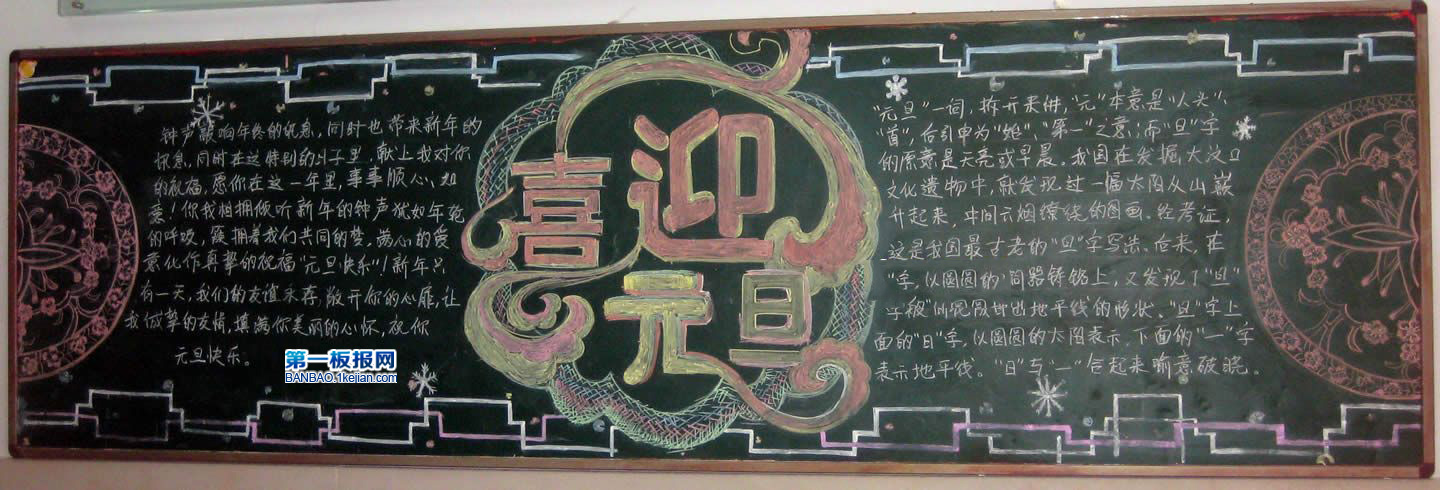 钟声敲响年终的讯息,同时也带来新年的
讯息,同时在这特别的日子里,献上我对你
的祝福,愿你在这一年里,事事顺心、如
意!你我相拥倾听新年的钟声犹如年轮
的呼吸,簇拥着我们共同的梦,满心的爱
意化作真挚的祝福“元旦快乐”!新年只
有一天,我们的友谊永存,敞开你的心扉,让
我诚挚的友情,填满你美丽的心怀,祝你
元旦快乐。
喜迎
元旦
“元旦”一词,拆开来讲,“元”本意是“人头”、
“首”,后引申为“始”、“第一”之意;而“旦”字
的原意是天亮或早晨。我国在发掘大汶口
文化遗物中,就发现过一幅太阳从山巅
升起来,中间云烟缭绕的图画。经考证,
这是我国最古老的“旦”字写法。后来,在
“字,以圆圆的 铸铭上,又发现了“旦”
字被 地平线的形状、“旦”字上
面的“日”字,以圆圆的太阳表示,下面的“一”字
表示地平线。“日”与“一”合起来喻意破晓。
第一板报网
BANBAO.1kejian.com